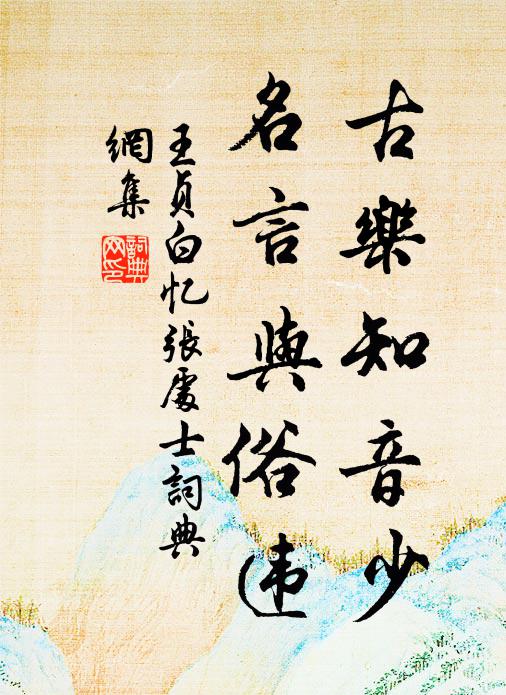 古樂知音少
名言與俗违
王貞白忆張處士詞典
網集
詞典
网印